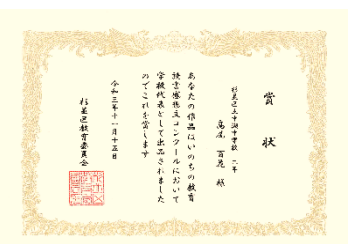 賞状
杉並区立中瀬中学校 二年
高尾 百花 様
あなたの作品はいのちの教育
読書感想文コンクールにおいて
学校代表として出品されました
のでこれを賞します
令和三年十一月十五日
杉並区教育委員会